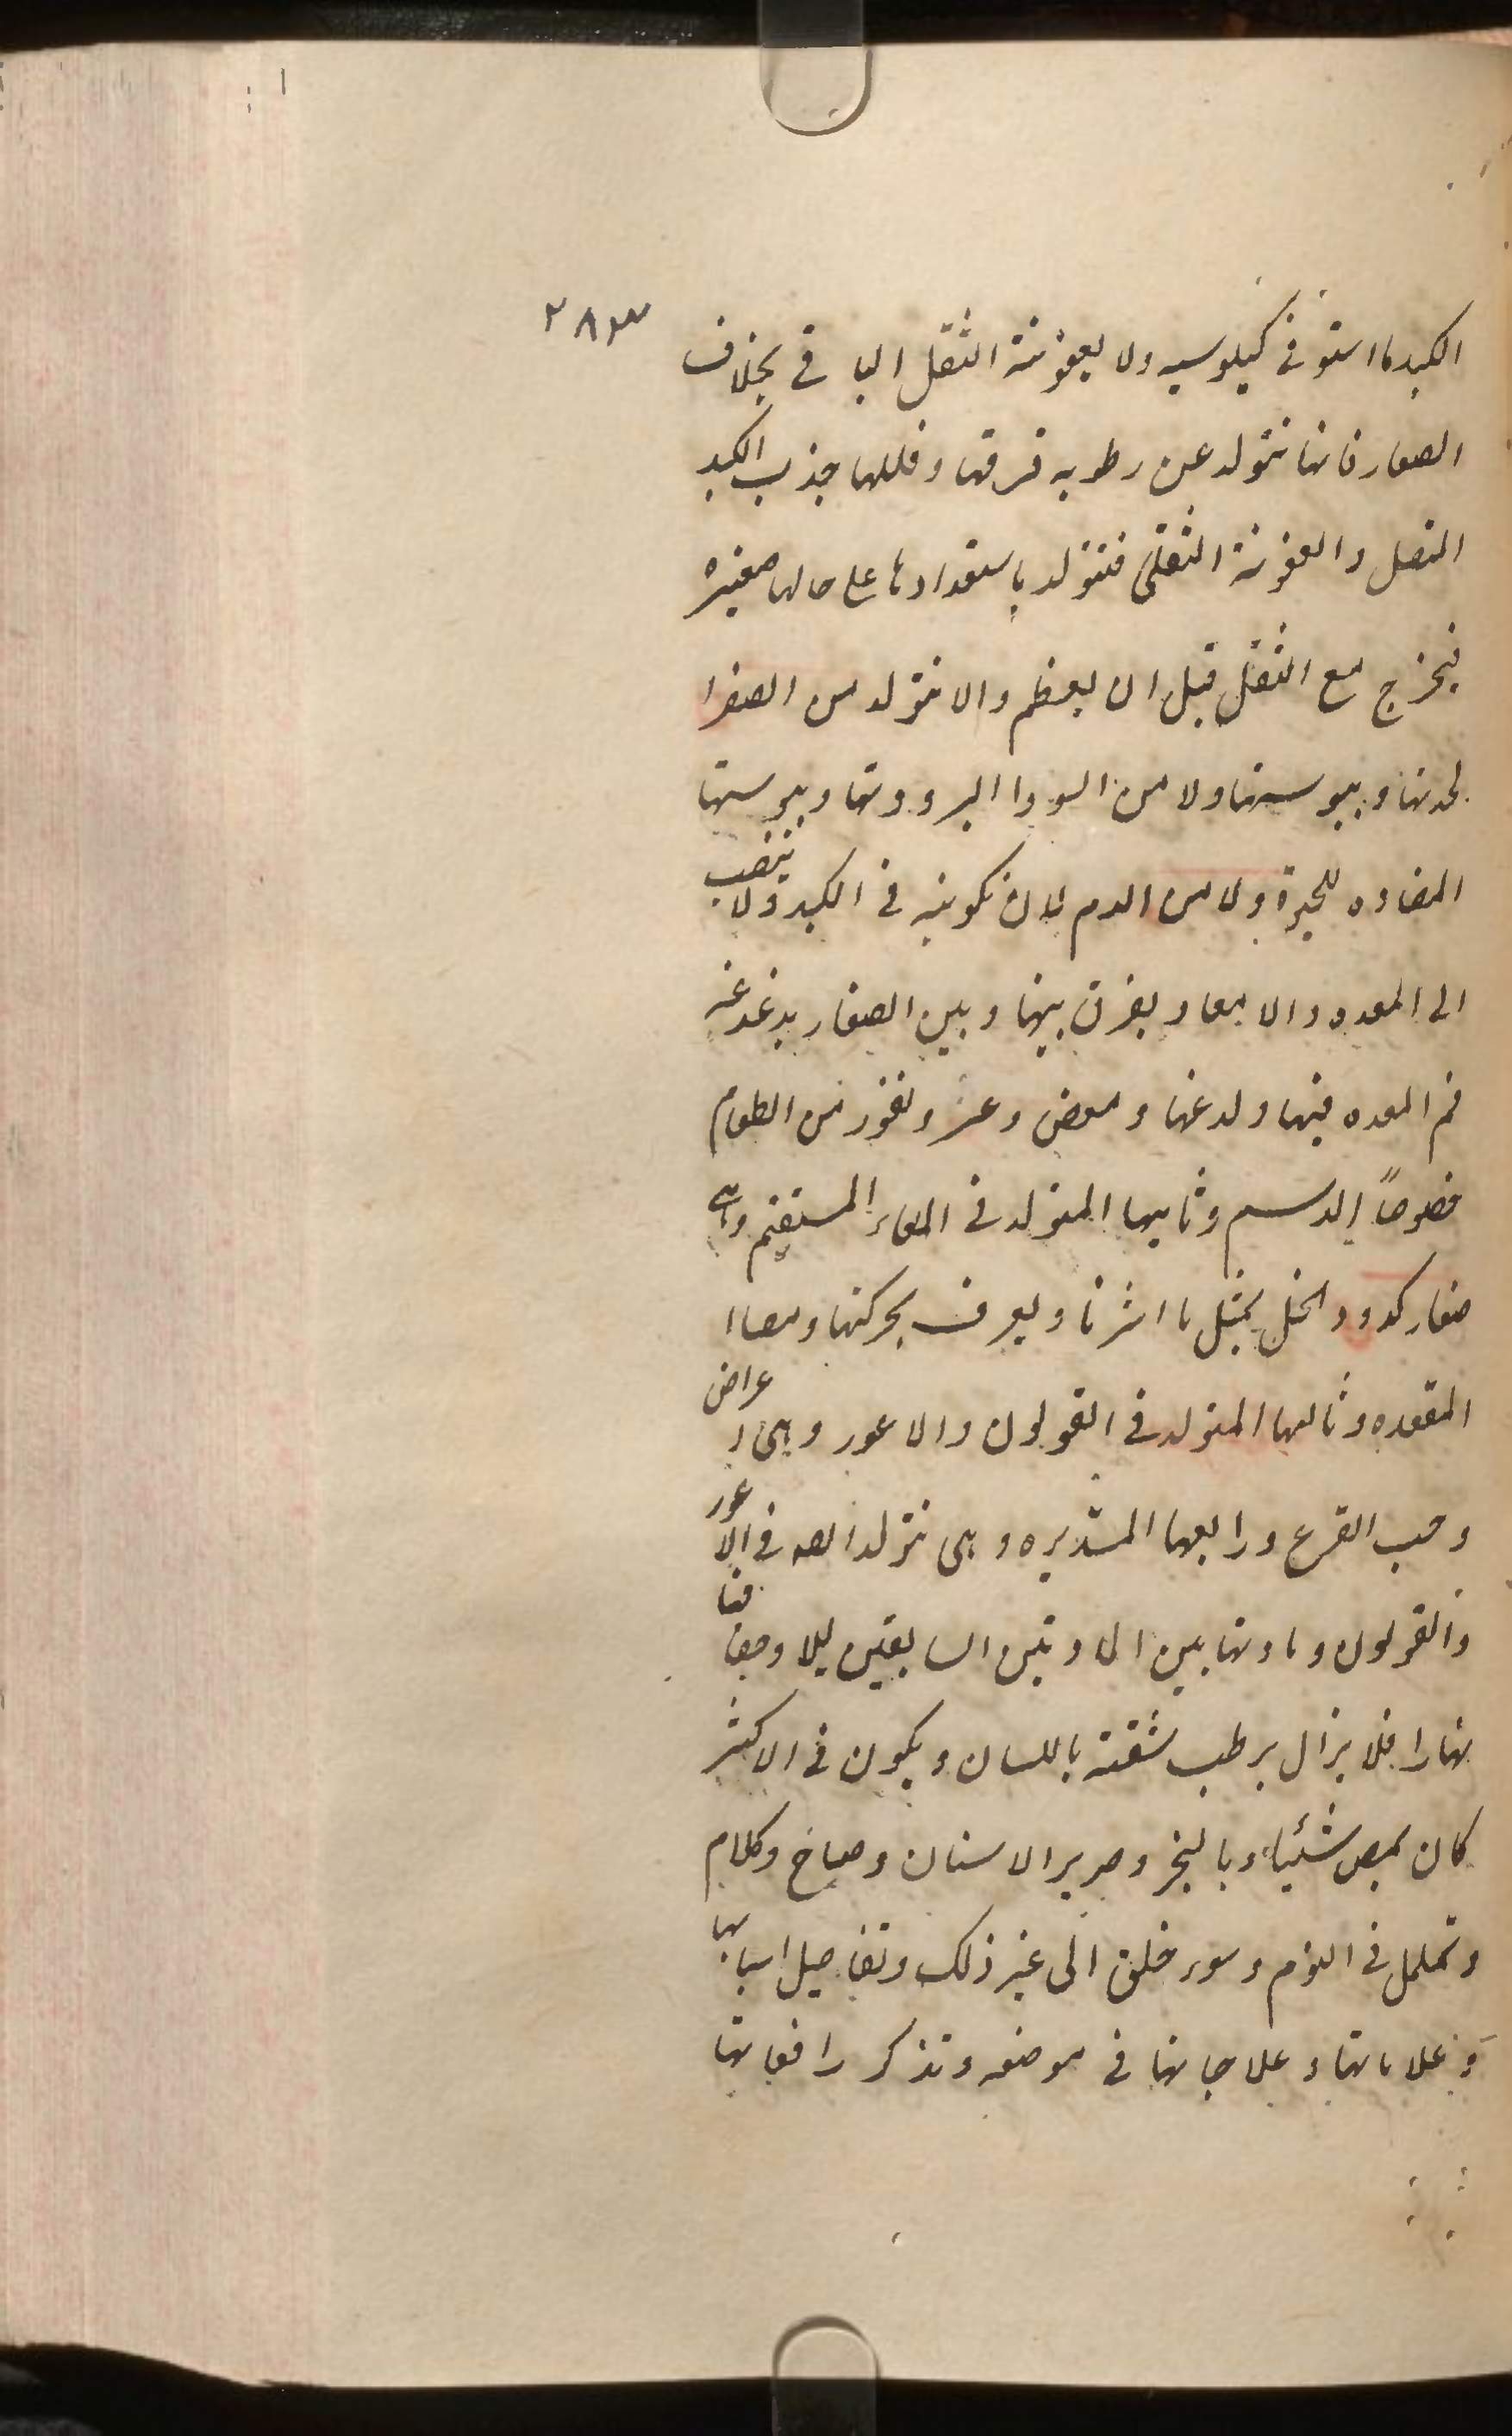 ٢٨٣
الكبد ما استوفى كيلوسيه ولا بعفونة الثقل الباقى بخلاف
الصغار فانها تتولد عن رطوبه فرقها وقللها جذب الكبد
المتصل والعفونة الثقلى فتتولد باستعدادها على حالها صغيره
فيخرج مع الثقل قبل ان يعظم والا تتولد من الصفرا
لحدتها ويبوستها ولا من السودا البرودتها ويبوستها
المضاده للحيوة ولا من الدم لان تكوينه فى الكبد ولا ينصب
الى المعده والامعا ويفرق بينها وبين الصغار بدغدغه
فم المعده فيها ولدغها ومغص وعسر ونفور من الطعام
خصوصاً الدسم وثانيها المتولد فى المعاء المستقيم وهى
صغار كدود الخل بمثل ما اشرنا ويعرف بحركتها ومصاا
المقعده وثالثها المتولد فى القولون والاعور وهى اعراض
وحب القرع ورابعها المستديره وهى تتولد ايضا فى الاعور
والقولون ومادتها بين المادتين السابقتين ليلا وجفافا
نهارا فلا يزال يرطب شفته باللسان ويكون فى الاكثر
كان يمص شيئاً وبالبخر وصرير الاسنان وصياح وكلام
وتململ فى النوم وسوء خلق الى غير ذلك وتفاصيل اسبابها
وعلاماتها وعلاجاتها فى موضعه وتذكر رافعاتها